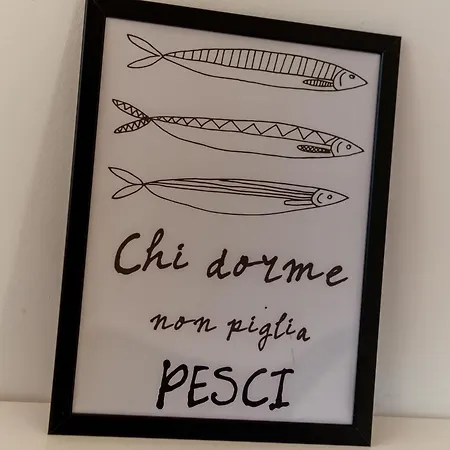 Chi dorme
non piglia
PESCI